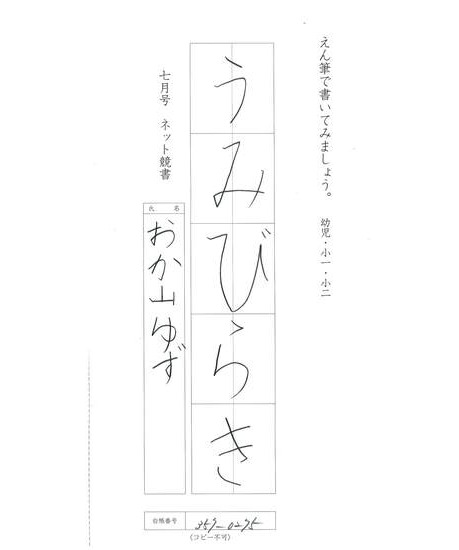 えん筆で書いてみましょう。　幼児・小一・小二
うみびらき
七月号　ネット競書
氏名
おか山ゆず
台帳番号
359-0275
(コピー不可)